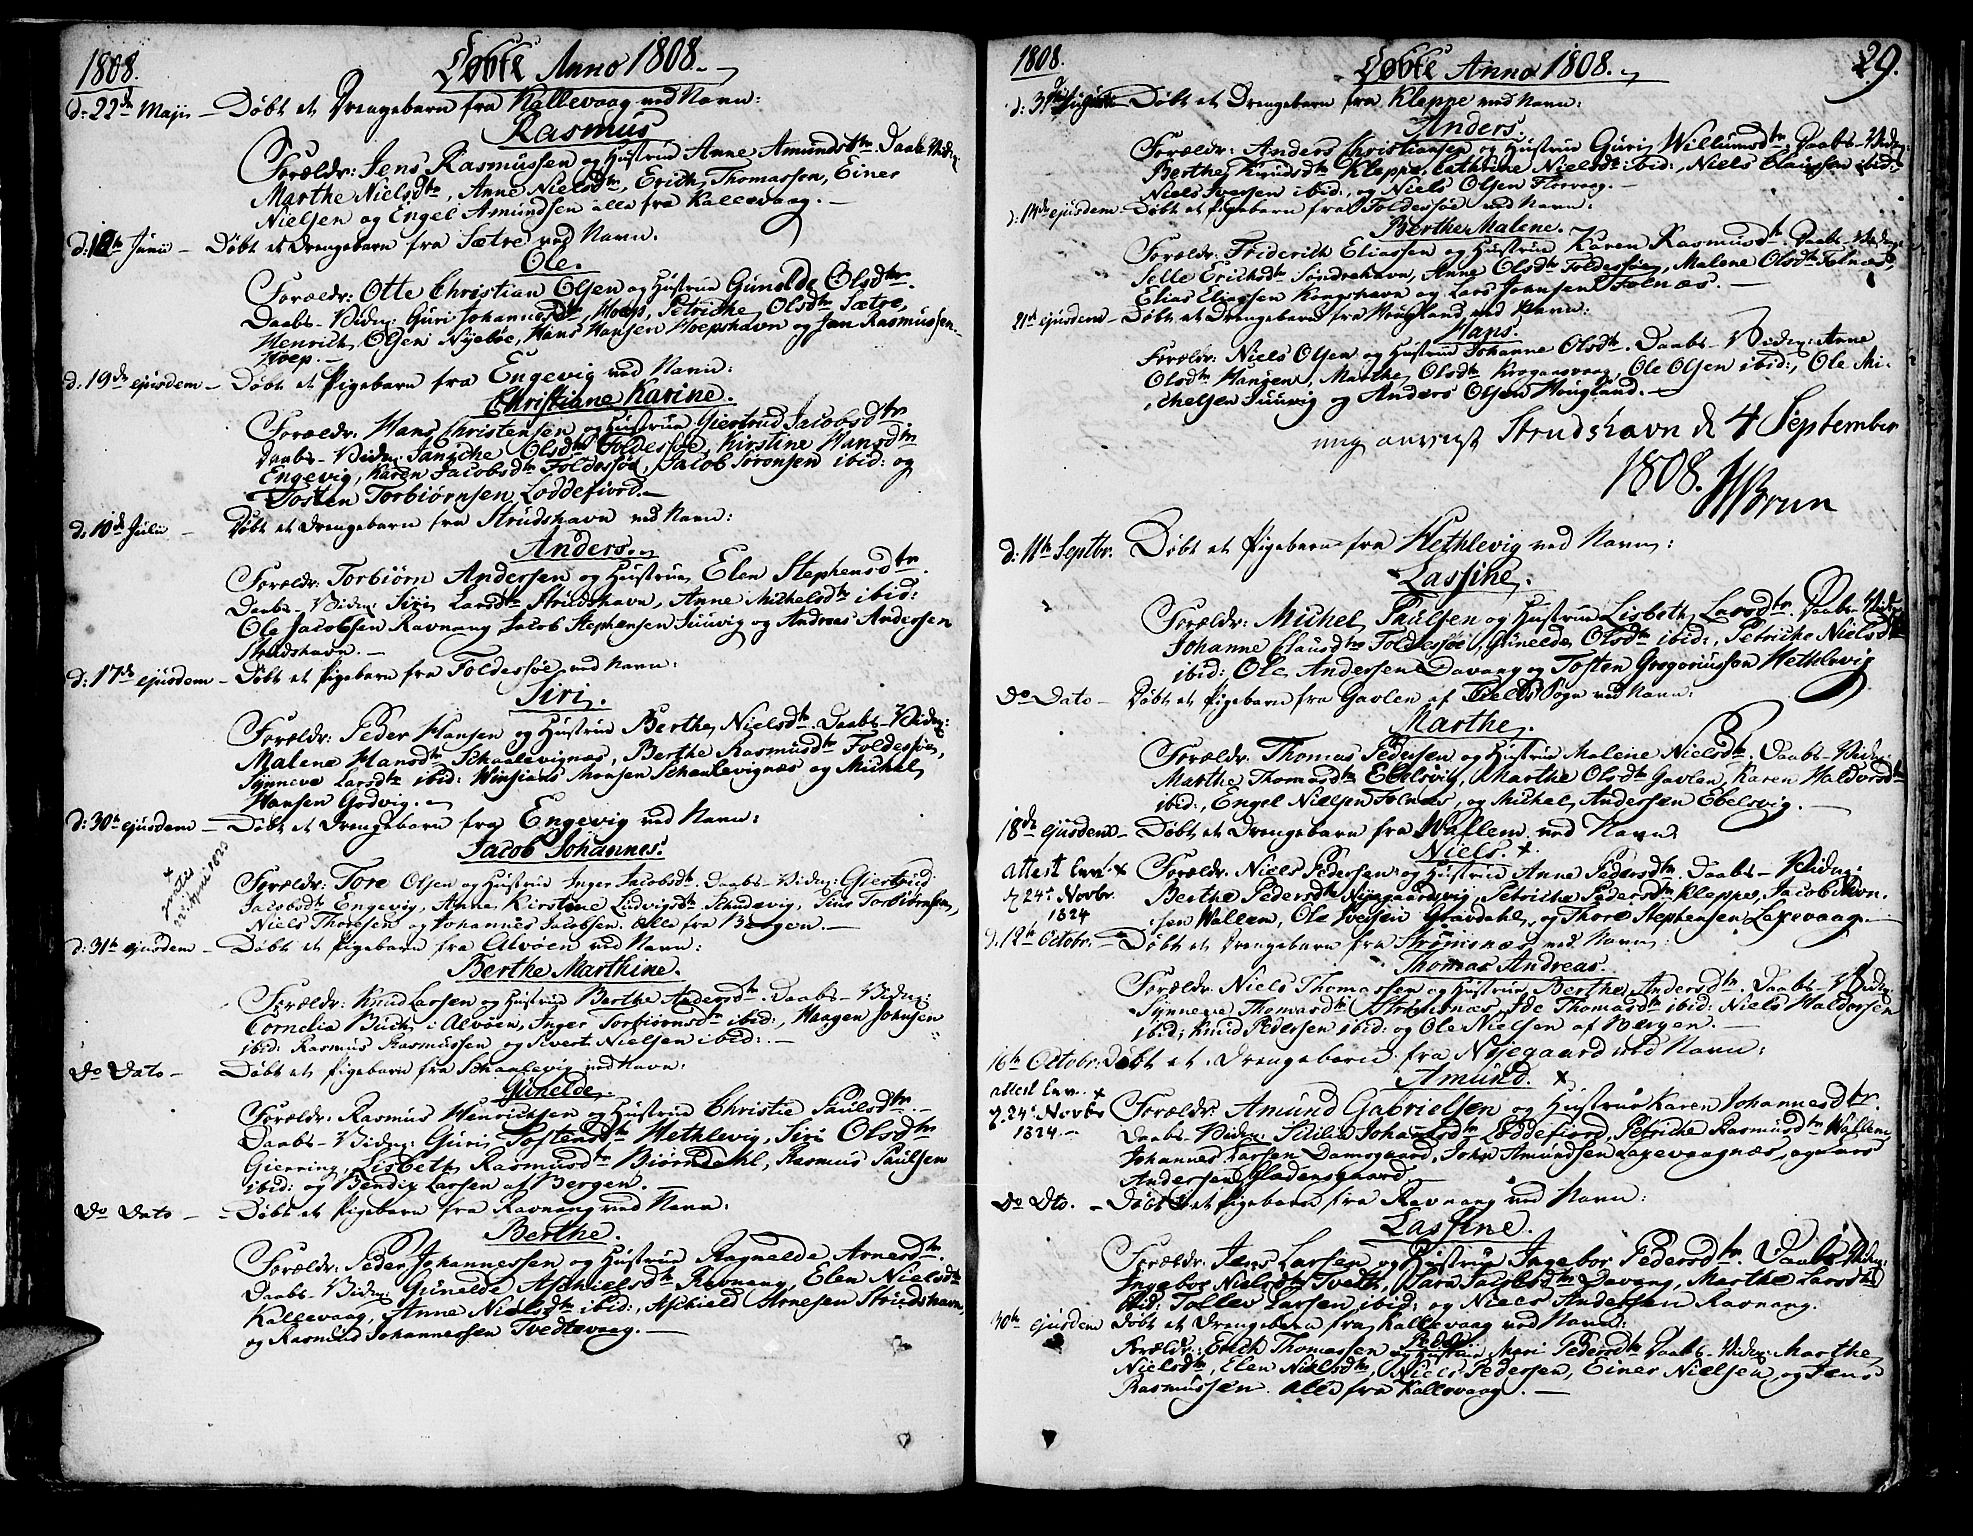 1808. Døbte Anno 1808.
d: 22de Maji – Døbt et Drengebarn fra Kallevaag ved Navn:
Rasmus
Forældr: Jens Rasmussen og Hustrue Anne Amundsdtr. Daabs-Vidn:
Marthe Nielsdtr, Anne Nielsdtr, Erich Thomassen, Einer
Nielsen og Engel Amundsen alle fra Kallevaag. –
d: 12te Junii – Døbt et Drengebarn fra Sætre ved Navn.
Ole.
Forældr: Otte Christian Olsen og Hustrue Gunelde Olsdtr.
Daabs-Vidn: Guri Johannesdtr Hoep, Petriche Olsdtr Sætre,
Henrich Olsen Nyebøe, Hans Hansen Hoepshavn og Jan Rasmussen
Hoep. –
d. 19de ejusdem – Døbt et Pigebarn fra Engevig ved Navn:
Christiane Karine.
Forældr: Hans Christensen og Hustrue Giertrud Jacobsdtr
Daabs-Vidn: Sanziche Olsdtr Foldessøe, Kirstine Hansdtr
Engevig, Karen Jacobsdtr Foldessøe, Jacob Sørensen ibid: og
Tosten Torbiørnsen Loddefiord. –
d: 10de Julii – Døbt et Drengebarn fra Strudshavn ved Navn:
Anders.
Forældr: Torbiørn Andersen og Hustrue Elen Stephensdtr.
Daabs-Vidn: Siri Larsdtr Strudshavn, Anne Michelsdtr ibid:
Ole Jacobsen Ravnang, Jacob Stephensen Juuvig og Andreas Andersen
Strudshavn. –
d: 17de ejusdem – Døbt et Pigebarn fra Foldessøe ved Navn:
Siri.
Forældr: Peder Hansen og Hustrue Berthe Nielsdtr. Daabs-Vidn:
Malene Hansdtr Schaalevignæs, Berthe Rasmusdtr Foldessøe,
Synneve Larsdtr ibid: Monsen Schaalevignæs og Michel
Hansen Godvig. –
d: 30te ejusdem – Døbt et Drengebarn fra Engevig ved Navn:
Jacob Johannes.
22 April 1823
Forældr: Tore Olsen og Hustrue Inger Jacobsdtr. Daabs-Vidn: Giertrud
Jacobsdtr Engevig, Anne Kirstine Ludvigsdtr, Jens Torbiørnsen,
Niels Thoresen og Johannes Jacobsen. Alle fra Bergen. –
d: 31te ejusdem – Døbt et Pigebarn fra Alvøen ved Navn:
Berthe Marthine.
Forældr: Knud Larsen og Hustrue Berthe Andersdtr. Daabs-Vidn:
Cornelia Buch i Alvøen, Inger Torbiørnsdtr ibid:, Haagen Johnsen
ibid: Rasmus Rasmussen og Sivert Nielsen ibid: –
Do Dato – Døbt et Pigebarn fra Schaalevig ved Navn:
Gunelde.
Forældr: Rasmus Henrichsen og Hustrue Christie Paulsdtr.
Daabs-Vidn: Guri Tostensdtr Hethlevig, Siri Olsdtr
Gierning, Lisbeth Rasmusdtr Biørndahl, Rasmus Paulsen
ibid: og Bendix Larsen af Bergen. –
Do Dato – Døbt et Pigebarn fra Ravnang ved Navn:
Berthe.
Forældr: Peder Johannessen og Hustrue Ragnelde Arnesdtr.
Daabs-Vidn: Gunelde Aschielsdtr Ravnang, Elen Nielsdtr
Kallevaag, Anne Nielsdtr ibid:, Aschield Arnesen Strudshavn,
og Rasmus Johannessen Tvedtevaag. –
1808. Døbte Anno 1808. 29.
d: 31 Døbt et Drengebarn fra Kleppe ved Navn:
Anders.
Forældr: Anders Christiansen og Hustrue Guri Willumsdtr. Daabs-Vidn:
Berthe Knudsdtr Kleppe, Cathrine Nielsdtr ibid:, Niels Clausen ibid:,
Niels Iversen ibid:, og Niels Olsen Florvaag. –
d: 14de ejusdem – Døbt et Pigebarn fra Foldessøe ved Navn:
Berthe Malene.
Forældr: Friderich Eliassen og Hustrue Karen Rasmusdtr. Daabs-Vidn:
Selle Erichsdtr Søndrehavn, Anne Olsdtr Foldessøe, Malene Olsdtr Folnæs,
Elias Eliassen Kongshavn og Lars Johnsen Folnæs. –
21te ejusdem – Døbt et Drengebarn fra Hougland ved Navn:
Hans.
Forældr: Niels Olsen og Hustrue Johanne Olsdtr. Daabs-Vidn: Anne
Olsdtr Hansen, Marthe Olsdtr Krogansvaag, Ole Olsen ibid:, Ole Mi-
chelsen Juuvig og Anders Olsen Hougland. –
Strudshavn d 4 September
1808. Brun
d: 11te Septbr. Døbt et Pigebarn fra Hethlevig ved Navn:
Lassine.
Forældr: Michel Paulsen og Hustrue Lisbeth Larsdtr. Daabs-Vidn:
Johanne Clausdtr Foldessøe, Gunelde Olsdtr ibid:, Petriche Nielsdtr
ibid: Ole Andersen Davang og Tosten Gregoriussen Hethlevig
Do Dato – Døbt et Pigebarn fra Gavlen af Fields Sogn ved Navn:
Marthe.
Forældr: Thomas Pedersen og Hustrue Malene Nielsdtr. Daabs-Vidn:
Marthe Thomasdtr Ebelsvig, Marthe Olsdtr Gavlen, Karen Haldorsdtr
ibid:, Engel Nielsen Folnæs, og Michel Andersen Ebelsvig. –
18de ejusdem – Døbt et Drengebarn fra Wallem ved Navn
Niels. x
attest x
24 Novbr.
1824
Forældr: Niels Pedersen og Hustrue Anne Pedersdtr. Daabs-Vidn:
Berthe Pedersdtr Nyegaardsvig, Petriche Pedersdtr Kleppe, Jacob Mon-
sen Wallem, Ole Iversen Gravdahl, og Thore Stephensen Laxevaag.
d. 12te Octobr. – Døbt et Drengebarn fra Strømsnæs ved Navn:
Thomas Andreas.
Forældr: Niels Thomassen og Hustrue Berthe Andersdtr. Daabs-Vidn:
Synneva Thomasdtr Strømsnæs, Ide Thomasdtr ibid: Niels Haldorsen
ibid; Knud Pedersen ibid: og Ole Nielsen af Bergen. –
16te Octobr: Døbt et Drengebarn fra Nyegaard ved Navn:
Amund. x
attest x
24 Novbr
1824. –
Forældr: Amund Gabrielsen og Hustrue Karen Johannesdtr.
Daabs-Vidn: Johannesdtr Loddefiord, Petriche Rasmusdtr Wallem,
Johannes Larsen Damsgaard, John Amundsen Laxevaagnæs, og Lars
Andersen Gladensgaard.
Do Dto. – Døbt et Pigebarn fra Ravnang ved Navn:
Lassine.
Forældr: Jens Larsen og Hustrue Ingebor Pedersdtr. Daabs-Vidn:
Ingebor Nielsdtr Tvedt, Sara Davang, Marthe Larsdtr
ibid: Tollev Larsen ibid: og Niels Andersen Ravnang.
30te ejusdem Døbt et Drengebarn fra Kallevaag ved Navn:
Peder
Forældr: Erich Thomassen og Hustrue Mari Pedersdtr. Daabs-Vidn: Marthe
Nielsdtr, Elen Nielsdtr, Niels Pedersen, Einer Nielsen, og Jens
Rasmussen. Alle fra Kallevaag. –